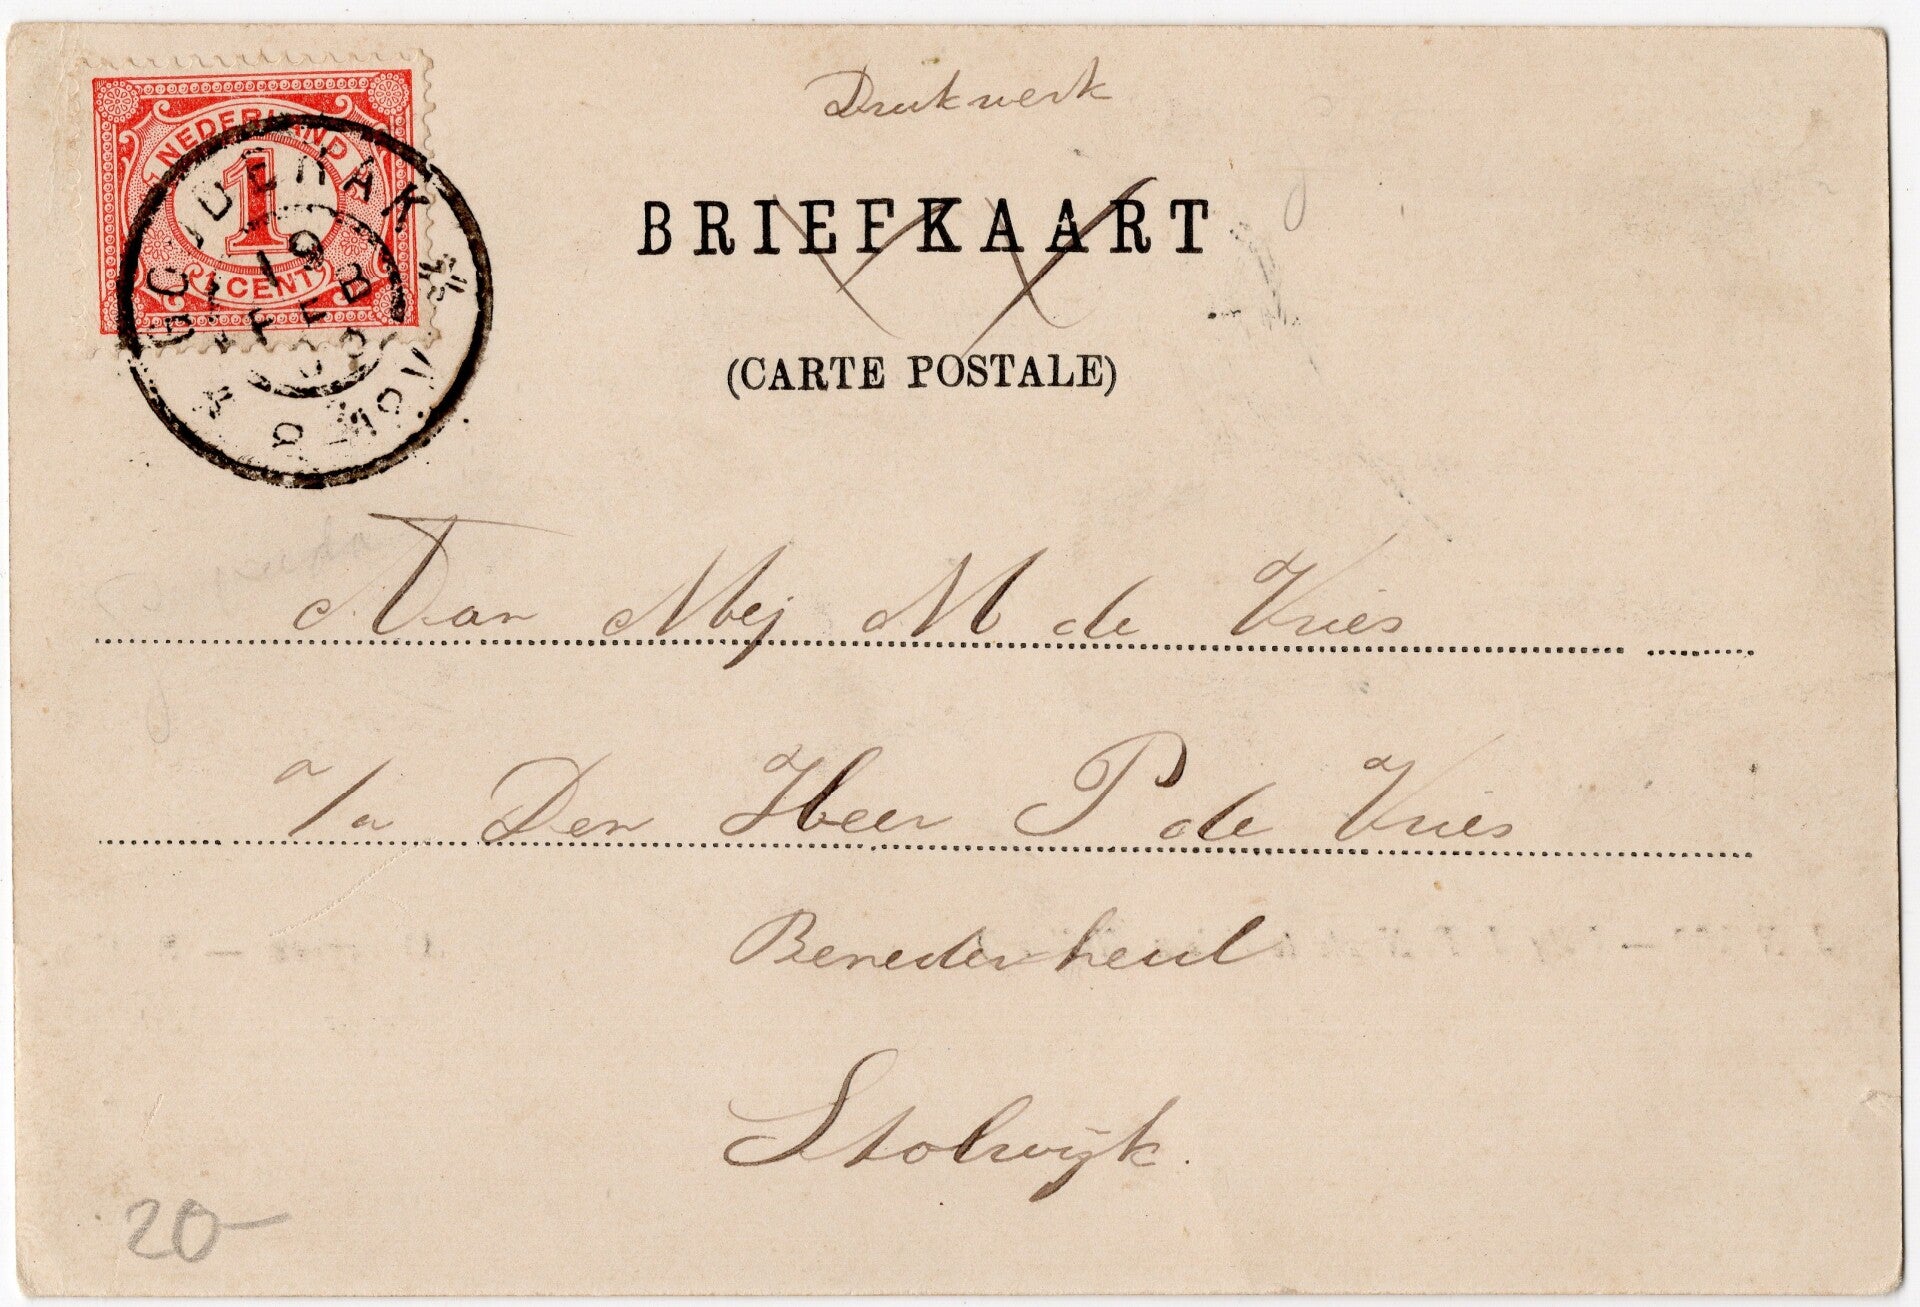 Drukwerk
NEDERLAND
1
1 CENT
GOUDERAK
19
FEB
BRIEFKAART
(CARTE POSTALE)
Aan Mej M de Vries
a/a Den Heer P de Vries
Benederheul
Stolwijk.
20-